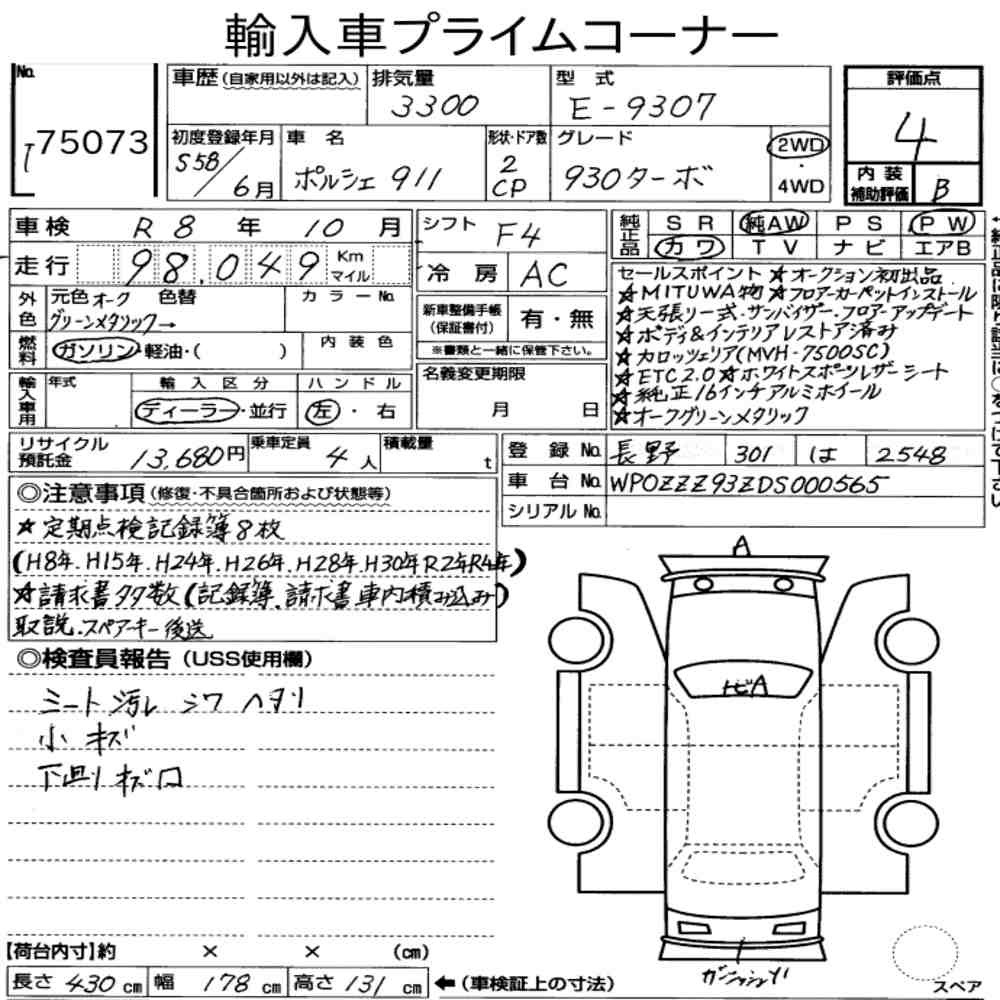 輸入車プライムコーナー
No.
75073
車歴(自家用以外は記入)
排気量
3300
型式
E-9307
評価点
4
初度登録年月
S58/6月
車名
ポルシェ 911
形状・ドア数
2
CP
グレード
930ターボ
2WD
・
4WD
内装
補助評価
B
車検 R8年 10月
走行 98,049 Km
マイル
外色
元色 オーク 色替
グリーンメタリック→
カラーNo.
燃料
ガソリン・軽油・( )
内装色
輸入車用
年式
輸入区分
ディーラー・並行
ハンドル
左・右
シフト F4
冷房 AC
新車整備手帳
(保証書付)
有・無
※書類と一緒に保管下さい。
名義変更期限
月 日
純正品
SR 純AW PS PW
カワ TV ナビ エアB
セールスポイント ★オークション初出品
★MITUWA物 ★フロアーカーペットインストール
★天張リ一式・サンバイザー・フロアーアップデート
★ボディ&インテリアレストア済み
★カロッツェリア(MVH-7500SC)
★ETC2.0 ★ホワイトスポーツレザーシート
★純正16インチアルミホイール
★オークグリーンメタリック
リサイクル
預託金
13,680円
乗車定員
4人
積載量
t
登録No. 長野 301 は 2548
車台No. WP0ZZZ93ZDS000565
シリアルNo.
◎注意事項(修復・不具合箇所および状態等)
★定期点検記録簿8枚
(H8年.H15年.H24年.H26年.H28年.H30年R2年R4年)
★請求書多数(記録簿.請求書車内積み込み)
取説.スペアーキー後送
◎検査員報告(USS使用欄)
シート汚レ シワ ヘタリ
小キズ
下回リ キズ
A
トビA
【荷台内寸】約 × × (cm)
長さ 430 cm 幅 178 cm 高さ 131 cm ←(車検証上の寸法)
スペア